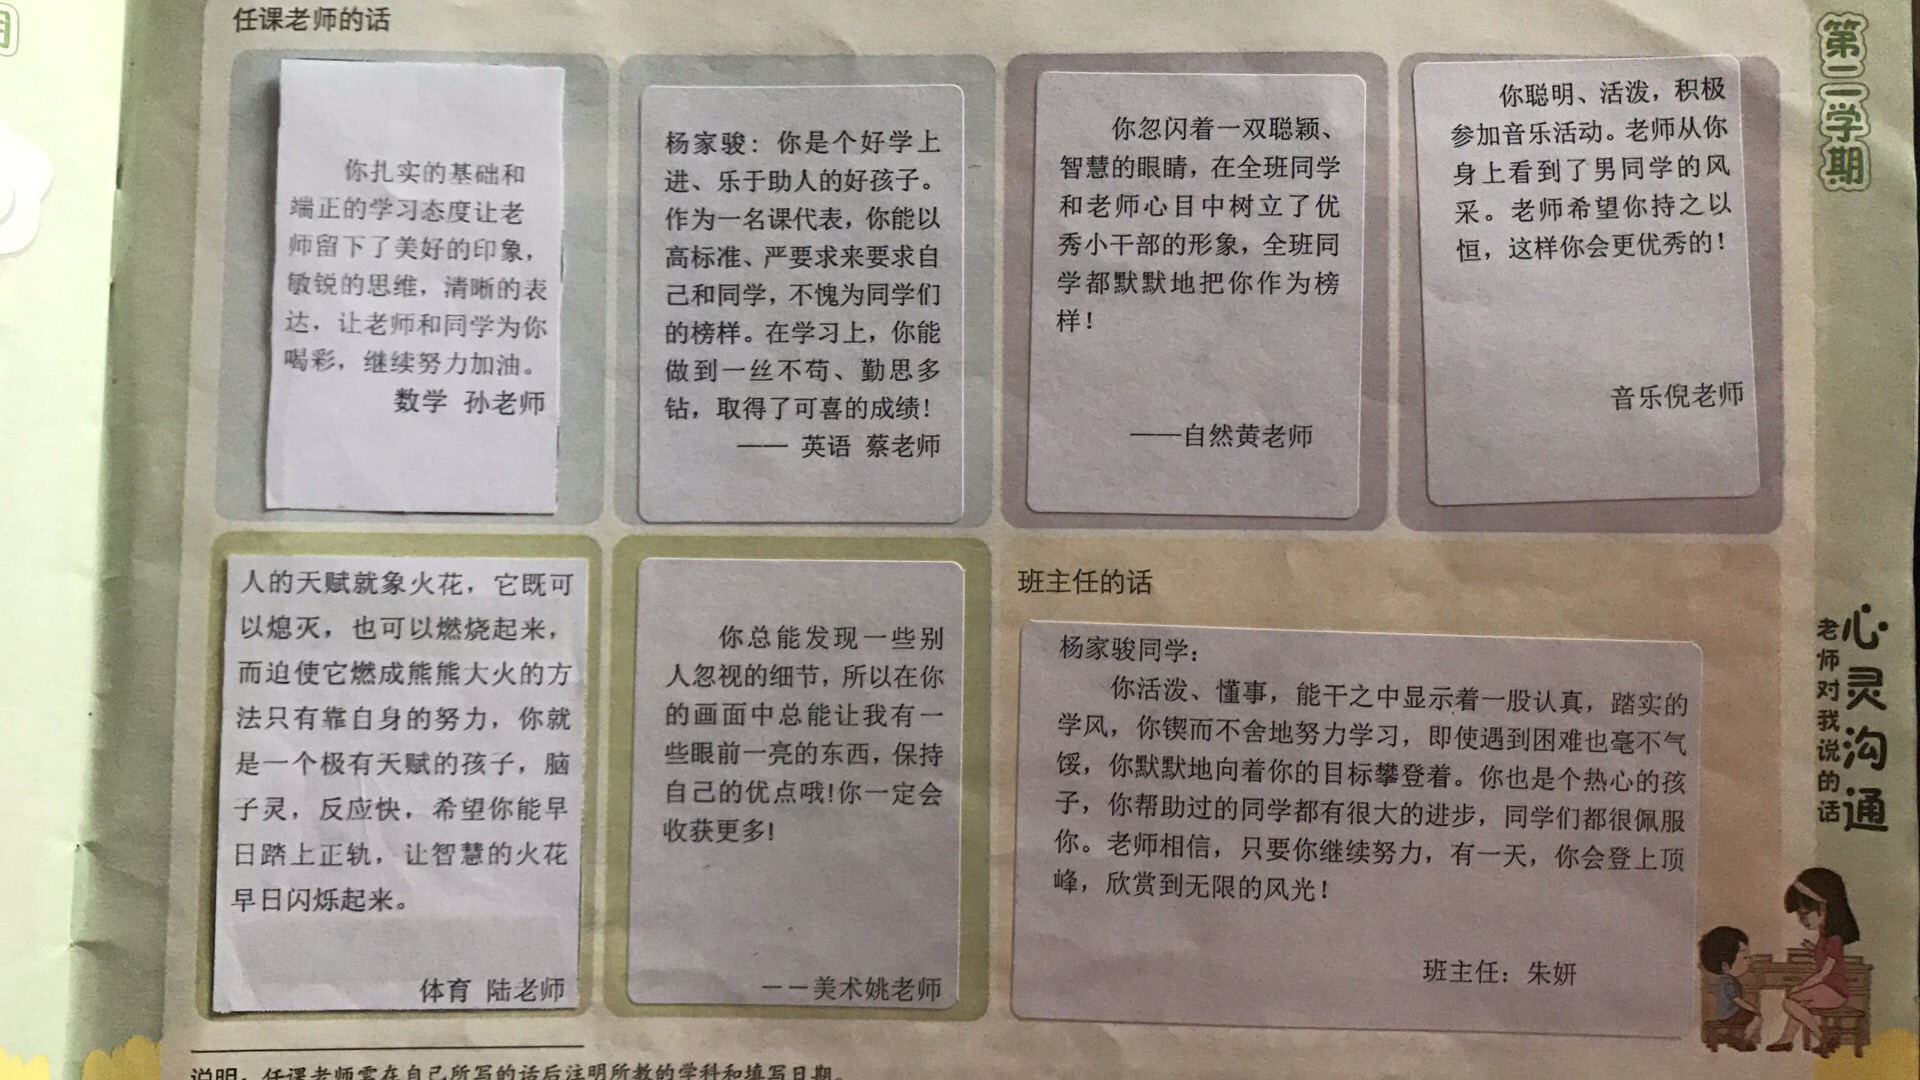 任课老师的话
你扎实的基础和
端正的学习态度让老
师留下了美好的印象，
敏锐的思维，清晰的表
达，让老师和同学为你
喝彩，继续努力加油。
数学 孙老师
杨家骏：你是个好学上
进、乐于助人的好孩子。
作为一名课代表，你能以
高标准、严要求来要求自
己和同学，不愧为同学们
的榜样。在学习上，你能
做到一丝不苟、勤思多
钻，取得了可喜的成绩！
—— 英语 蔡老师
你忽闪着一双聪颖、
智慧的眼睛，在全班同学
和老师心目中树立了优
秀小干部的形象，全班同
学都默默地把你作为榜
样！
——自然黄老师
你聪明、活泼，积极
参加音乐活动。老师从你
身上看到了男同学的风
采。老师希望你持之以
恒，这样你会更优秀的！
音乐倪老师
人的天赋就象火花，它既可
以熄灭，也可以燃烧起来，
而迫使它燃成熊熊大火的方
法只有靠自身的努力，你就
是一个极有天赋的孩子，脑
子灵，反应快，希望你能早
日踏上正轨，让智慧的火花
早日闪烁起来。
体育 陆老师
你总能发现一些别
人忽视的细节，所以在你
的画面中总能让我有一
些眼前一亮的东西，保持
自己的优点哦！你一定会
收获更多！
－－美术姚老师
班主任的话
杨家骏同学：
你活泼、懂事，能干之中显示着一股认真，踏实的
学风，你锲而不舍地努力学习，即使遇到困难也毫不气
馁，你默默地向着你的目标攀登着。你也是个热心的孩
子，你帮助过的同学都有很大的进步，同学们都很佩服
你。老师相信，只要你继续努力，有一天，你会登上顶
峰，欣赏到无限的风光！
班主任：朱妍
第二学期
心灵沟通
老师对我说的话
说明：任课老师需在自己所写的话后注明所教的学科和填写日期。